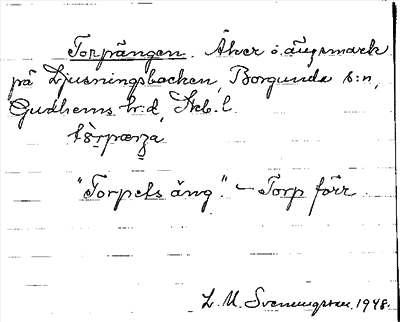 Torpängen. Åker o. ängsmark
på Ljusningsbacken, Borgunda s:n,
Gudhems hr:d, Skb. l.
"Torpets äng." – Torp förr
L. M. Svenungsson, 1948.